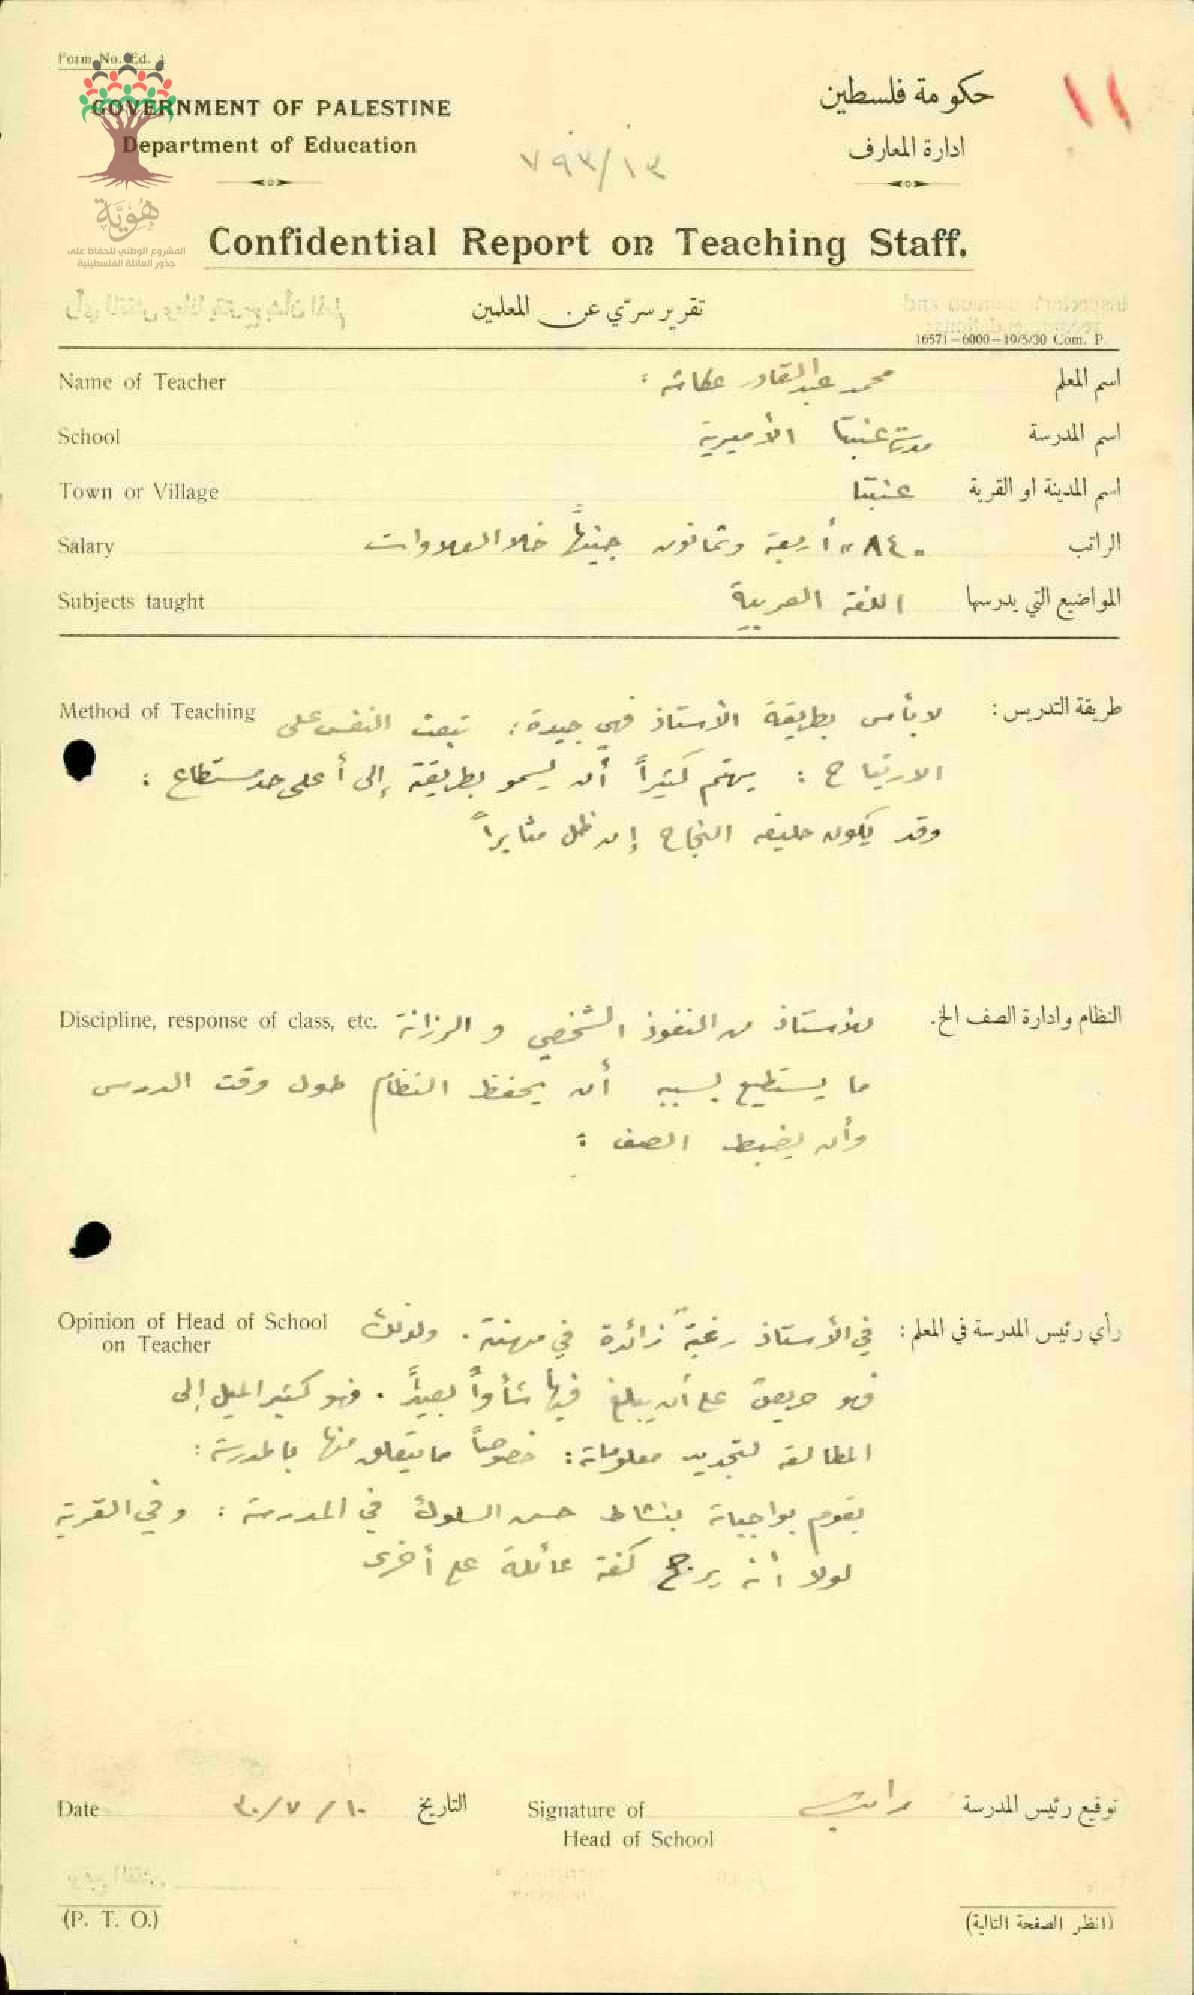 Form No. Ed. 4
GOVERNMENT OF PALESTINE
Department of Education
حكومة فلسطين
ادارة المعارف
١١
٧٩٣/١٣
هُوِيَّة
المشروع الوطني للحفاظ على
جذور العائلة الفلسطينية
Confidential Report on Teaching Staff.
تقرير سرّي عن المعلمين
16571—6000—19/5/30 Com. P.
Name of Teacher محمد عبد القادر : اسم المعلم
School مدرسة عنبتا الأميرية اسم المدرسة
Town or Village عنبتا اسم المدينة او القرية
Salary ٨٤٠ أربعة وثمانون جنيهاً خلا العلاوات الراتب
Subjects taught اللغة العربية المواضيع التي يدرسها
Method of Teaching لا بأس بطريقة الأستاذ فهي جيدة : تبعث النفس على طريقة التدريس :
الارتياح : يهتم كثيراً أن يسمو بطريقته إلى أعلى حد مستطاع :
وقد يكون حليفه النجاح إن ظل مثابراً
Discipline, response of class, etc. للأستاذ من النفوذ الشخصي و الرزانة النظام وادارة الصف الخ.
ما يستطيع بسببه أن يحفظ النظام طول وقت الدرس
وأن يضبط الصف :
Opinion of Head of School
on Teacher
رأي رئيس المدرسة في المعلم : في الأستاذ رغبة زائدة في مهنته . ولذلك
فهو حريص على أن يبلغ فيها شأواً بعيداً . فهو كثير الميل إلى
المطالعة لتجديد معلوماته : خصوصاً ما يتعلق منها بالمدرسة :
يقوم بواجباته بنشاط حسن السلوك في المدرسة : وفي القرية
لولا أنه يرجح كفة عائلة على أخرى
Date ٣٠/٧/١٠ التاريخ
Signature of
Head of School
توقيع رئيس المدرسة
(P. T. O.)
(انظر الصفحة التالية)